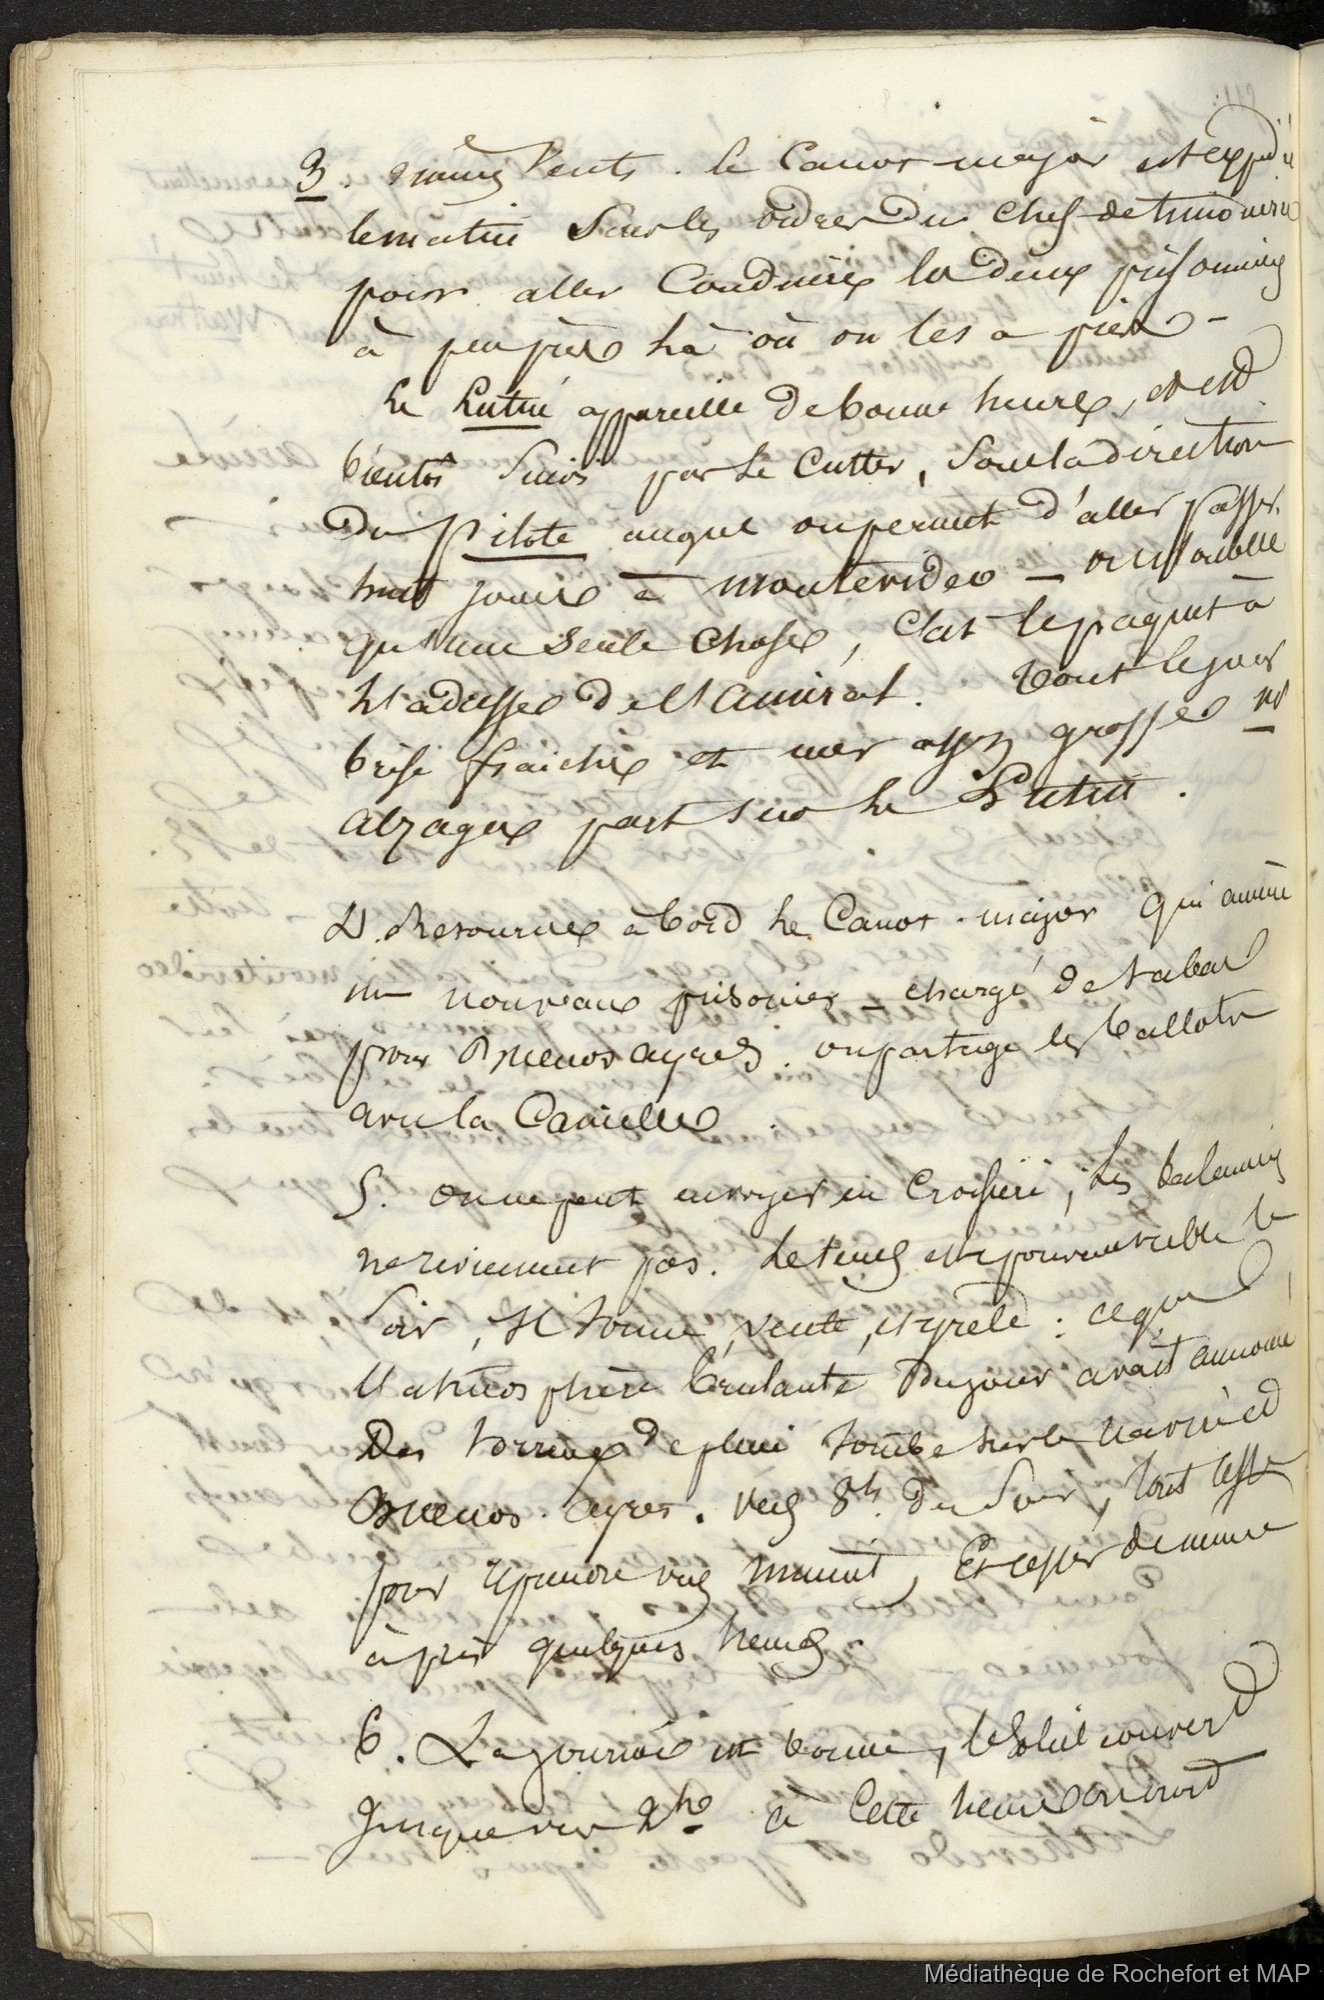 3. mêmes vents. le Canot-major est expédié
le matin sous les ordres du Chef de timonerie
pour aller Conduire les deux prisonniers
à peu près là où on les a pris -
Le Lutin appareille de bonne heure, et est
bientôt suivi par le Cutter, sous la direction
du Pilote auquel on permet d'aller passer
huit jours à montévideo — on n'oublie
qu'une seule chose, c'est le paquet à
l'adresse de l'Amiral. Tout le jour
brise fraîche et mer assez grosse Mr
alzague part sur le Lutin.
4. Retourne à bord le Canot-major qui amène
un nouveau prisonier - chargé de tabac
pour Buenos ayres. on partage les ballots
avec la Camille.
5. on ne peut envoyer en Croisière, les baleiniers
ne reviennent pas. Le temps est épouvantable le
soir, il tonne, vente, et grêle : ce que
l'athmosphère brulante du jour avait annoncé
Des torrens de pluie tombe sur le navire et
Buenos-ayres. vers 8h. du soir, tout cesse
pour reprendre vers minuit, Et cesser de même
après quelques heures.
6. La journée est bonne, le soleil couvert
jusque vers 2h. à Cette heure on croit
Médiathèque de Rochefort et MAP